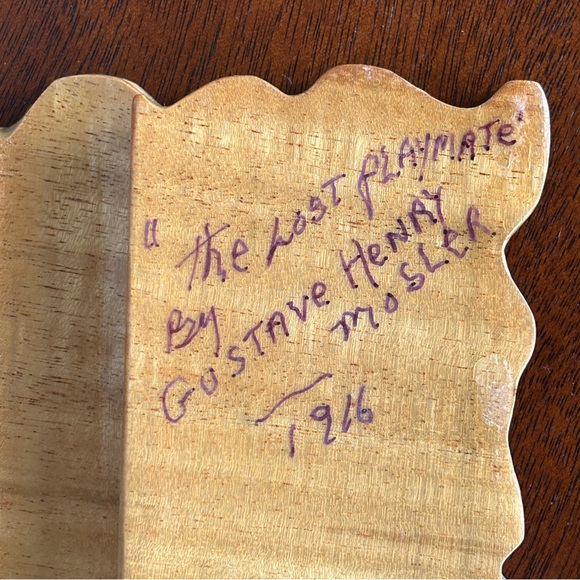 "The Lost Playmate"
By
Gustave Henry
Mosler
1916